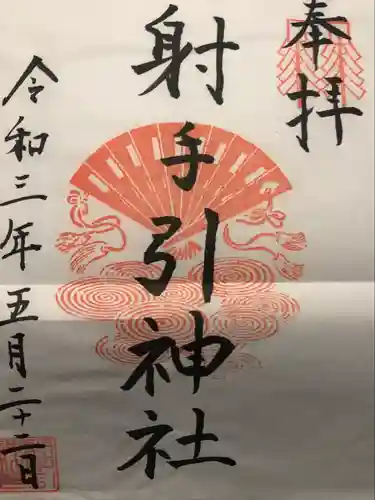 奉拝
射手引神社
令和三年五月二十二日